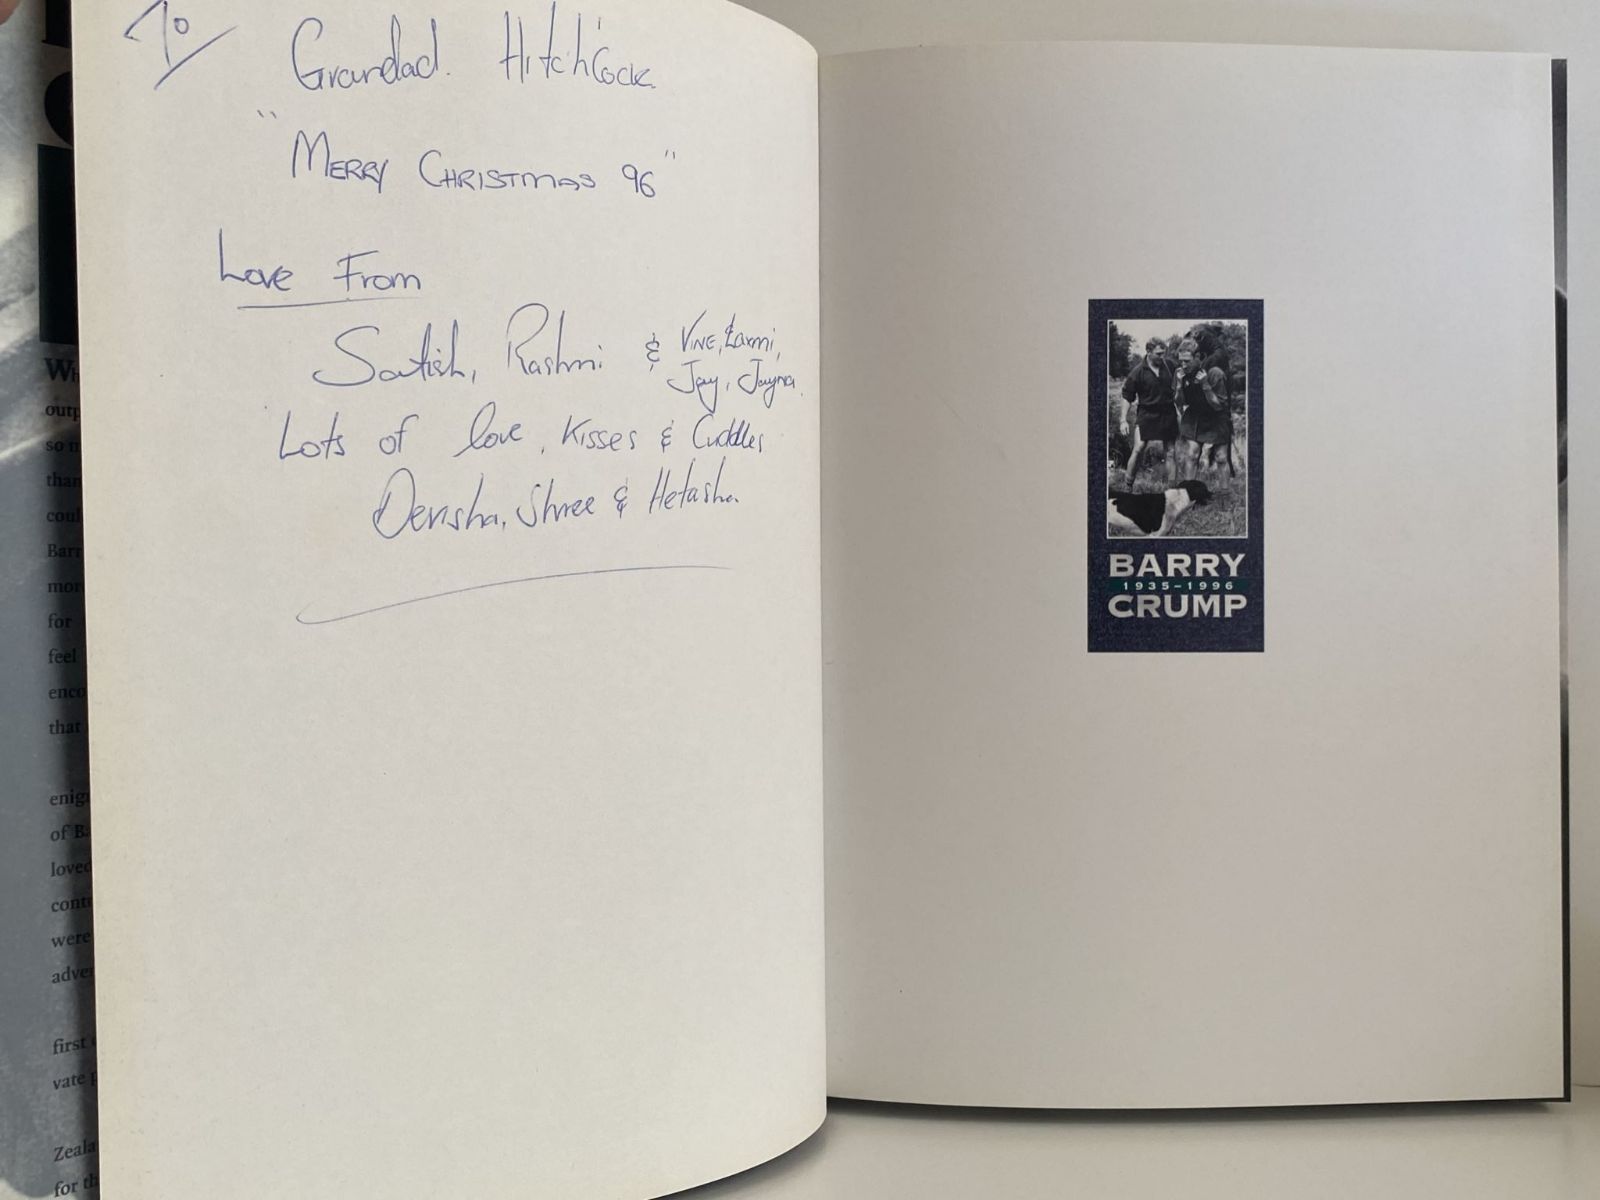 To
Grandad. Hitchcock.
"MERRY CHRISTMAS 96"
Love From
Satish, Rashmi & VINE, Laxmi,
Jay, Jayna.
Lots of love, Kisses & Cuddles
Denisha, Shree & Hetasha.
BARRY
1935–1996
CRUMP
Wh
outp
so m
than
coul
Barr
mor
for
feel
enco
that
enig
of B
loved
cont
were
adve
first
vate p
Zeala
for th